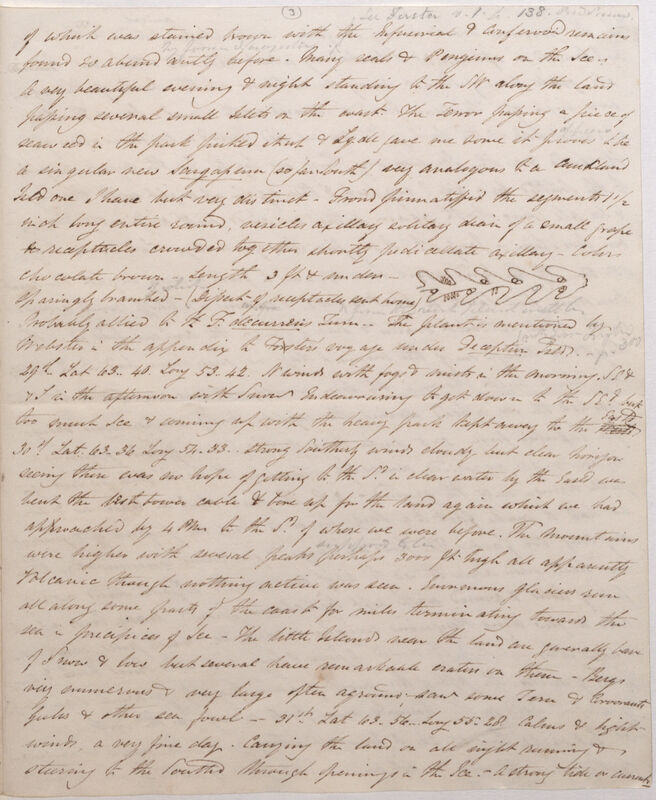 (3)
See Forster v. 1. p. 138.
of which was stained brown with the Infusorial & Confervoid remains
found so abundantly before. Many seals & Penguins on the Ice -
A very beautiful evening & night standing to the SW along the land
passing several small Islets on the coast. The Terror passing a piece of
seaweed in the pack picked it up & Lyall gave me some it proves to be
a singular new Sargassum (so far South) very analogous to a Auckland
Isld one I have but very distinct - Frond pinnatifid the segments 1 1/2
inch long entire round, vesicles axillary solitary diam of a small grape
receptacles crowded together shortly pedicellate axillary - Color
chocolate brown - Length 3 ft & under -
Sparingly branched - (Dissect. of receptacles sent home)
Probably allied to the F. decurrens Turn. - The plant is mentioned by
Webster in the appendix to Forsters voyage under Deception Isld. -
29th Lat. 63. 40. Long 53. 42. N winds with fogs & mists in the morning, SE &
& S in the afternoon with Snow Endeavouring to get down to the SEd. but
too much Ice & coming up with the heavy pack kept away to the East
30th Lat. 63. 36 Long 54. 33. strong Southerly winds cloudy but clear horizon
seeing there was no hope of getting to the Sd. in clear water by the East we
bent the best bower cable & bore up for the land again which we had
approached by 4 PM to the Sd of where we were before. The mountains
were higher with several peaks perhaps 3000 ft high all apparently
Volcanic though nothing active was seen. Enormous glaciers run
all along some parts of the coast for miles terminating towards the
sea in precipices of Ice - The little Islands near the land are generally bare
of Snow & low but several have remarkable craters on them - Bergs
very numerous & very large often aground, saw some Tern & Cormorants
gulls & other sea fowl - 31st Lat 63. 56. Long 55. 28. Calms & light
winds, a very fine day. Carrying the land on all night running &
steering to the Southd through openings in the Ice. - A strong tide or current